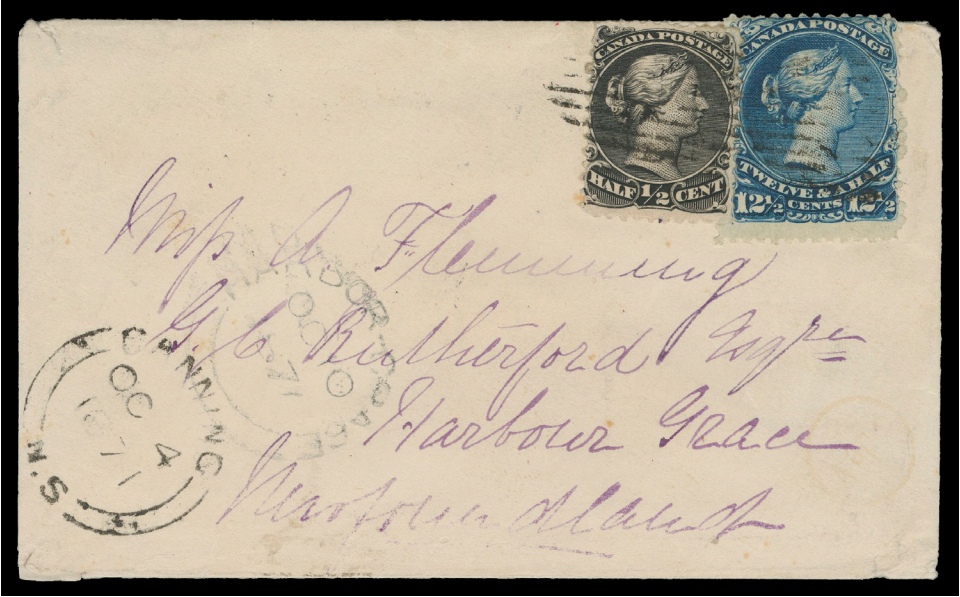 CANADA POSTAGE
HALF 1/2 CENT
CANADA POSTAGE
TWELVE & A HALF
12½ CENTS 12½
Miss A. Flemming
G. C. Rutherford Esqre
Harbour Grace
Newfoundland
HARBOR GRACE
OC
71
CANNING
OC 4
1871
N.S